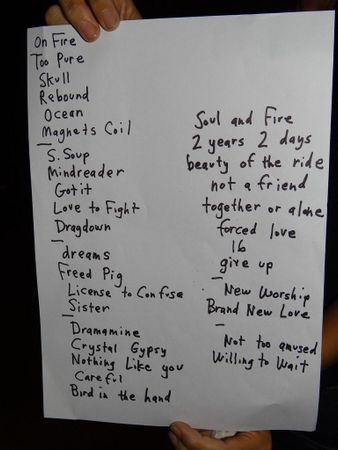 On Fire
Too Pure
Skull
Rebound
Ocean
Magnets Coil
S. Soup
Mindreader
Got it
Love to Fight
Dragdown
dreams
Freed Pig
License to Confuse
Sister
Dramamine
Crystal Gypsy
Nothing Like you
Careful
Bird in the hand
Soul and Fire
2 years 2 days
beauty of the ride
not a friend
together or alone
forced love
16
give up
New Worship
Brand New Love
Not too amused
Willing to Wait